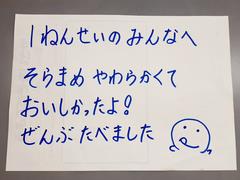 1ねんせいの みんなへ
そらまめ やわらかくて
おいしかったよ!
ぜんぶ たべました